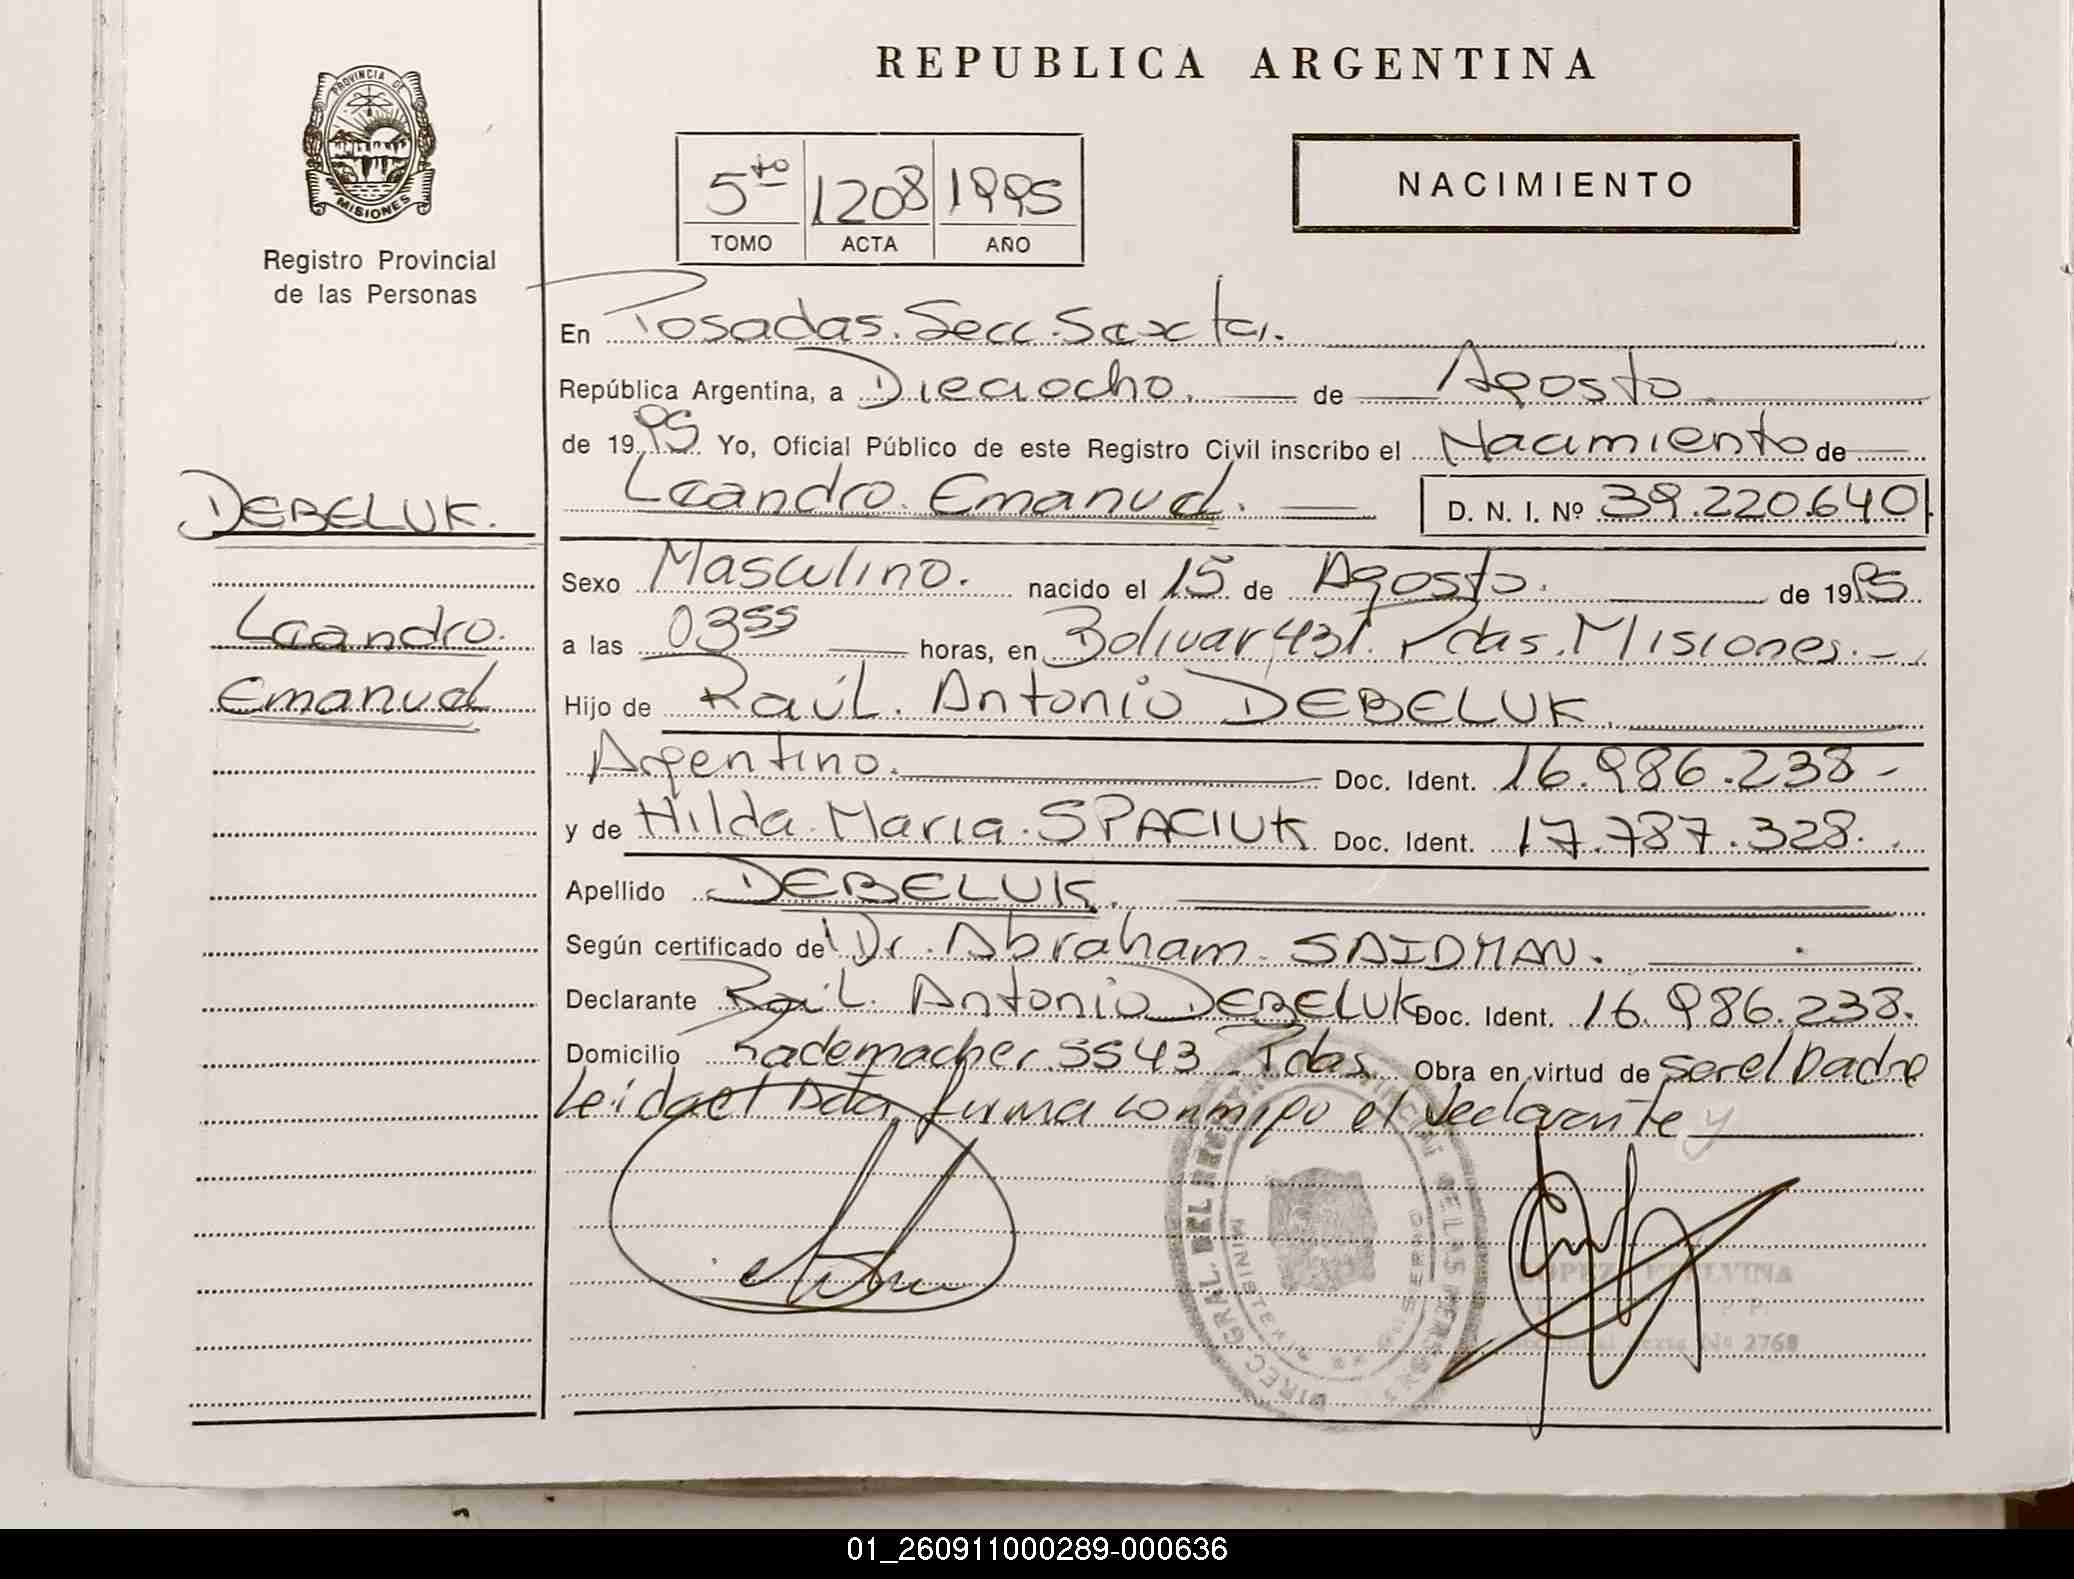 REPUBLICA ARGENTINA
PROVINCIA DE
MISIONES
Registro Provincial
de las Personas
5to 1208 1995
TOMO ACTA AÑO
NACIMIENTO
En Posadas. Secc. Sexta.
República Argentina, a Dieciocho. de Agosto
de 1995 Yo, Oficial Público de este Registro Civil inscribo el Nacimiento de
Leandro Emanuel. D. N. I. Nº 39.220.640
DEBELUK.
Leandro.
Emanuel
Sexo Masculino. nacido el 15 de Agosto. de 1995
a las 0355 horas, en Bolivar 431. Pdas. Misiones.-
Hijo de Raúl. Antonio DEBELUK
Argentino. Doc. Ident. 16.986.238-
y de Hilda. Maria. SPACIUK Doc. Ident. 17.787.328.
Apellido DEBELUK.
Según certificado de Dr. Abraham SAIDMAN.
Declarante Raúl. Antonio DEBELUK Doc. Ident. 16.986.238.
Domicilio Rademacher. 5543 Pdas. Obra en virtud de ser el padre
Leida el Acta firma conmigo el declarante y
DIREC. GRAL. DEL REG. PROVINCIAL DE LAS PERSONAS
MINISTERIO
LOPEZ ETELVINA
Nº 2768
01_260911000289-000636